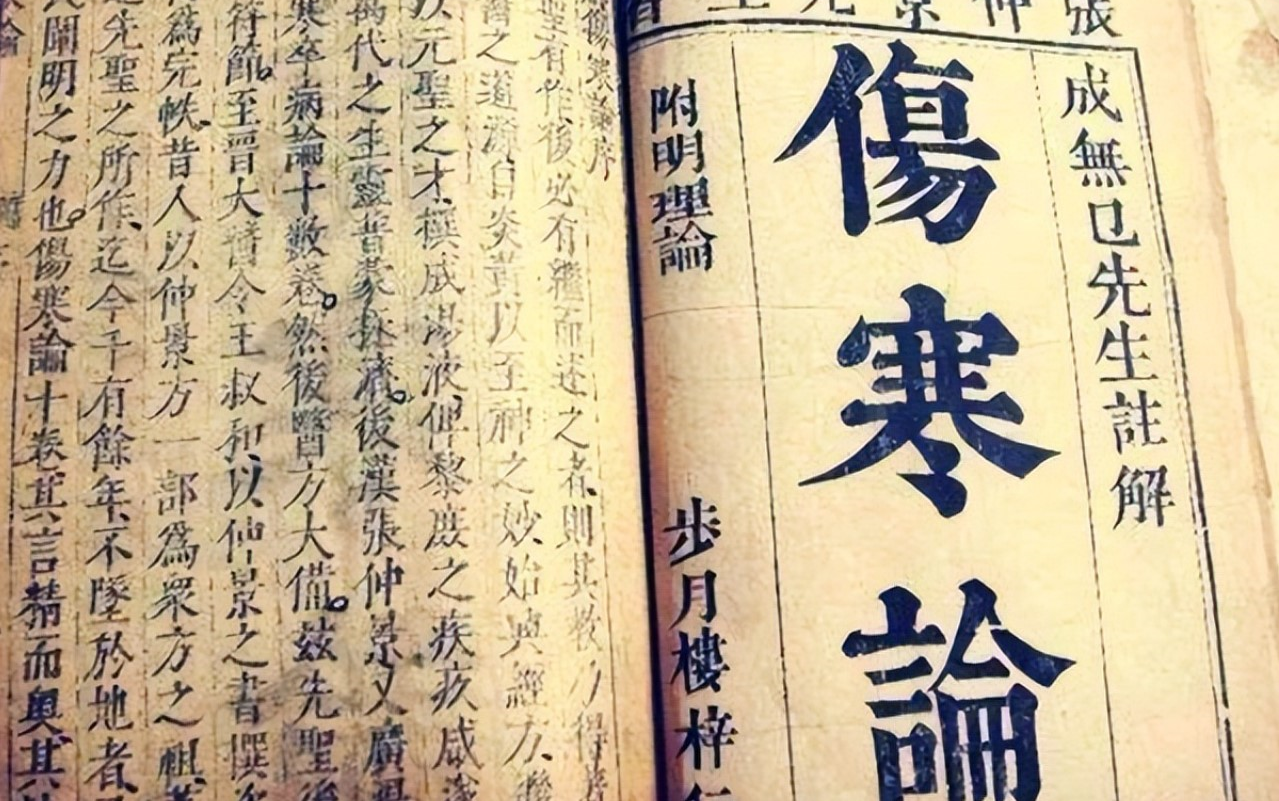 張仲景先生
成無已先生註解
傷寒論
附明理論
步月樓梓
傷寒論序
聖有作後必有繼而述之者、則其教乃得
醫之道源自炎黃以至神之妙始興經方、繼
元聖之才、撰成湯液、俾黎庶之疾疚咸遂
萬代之生靈普蒙拯濟。後漢張仲景又廣
寒卒病論十數卷。然後醫方大備。茲先聖後
符節。至晉太醫令王叔和、以仲景之書撰次
為完帙、昔人以仲景方一部為眾方之祖、
先聖之所作、迄今千有餘年、不墜於地者、
開明之力也。傷寒論十卷其言精而奧、其